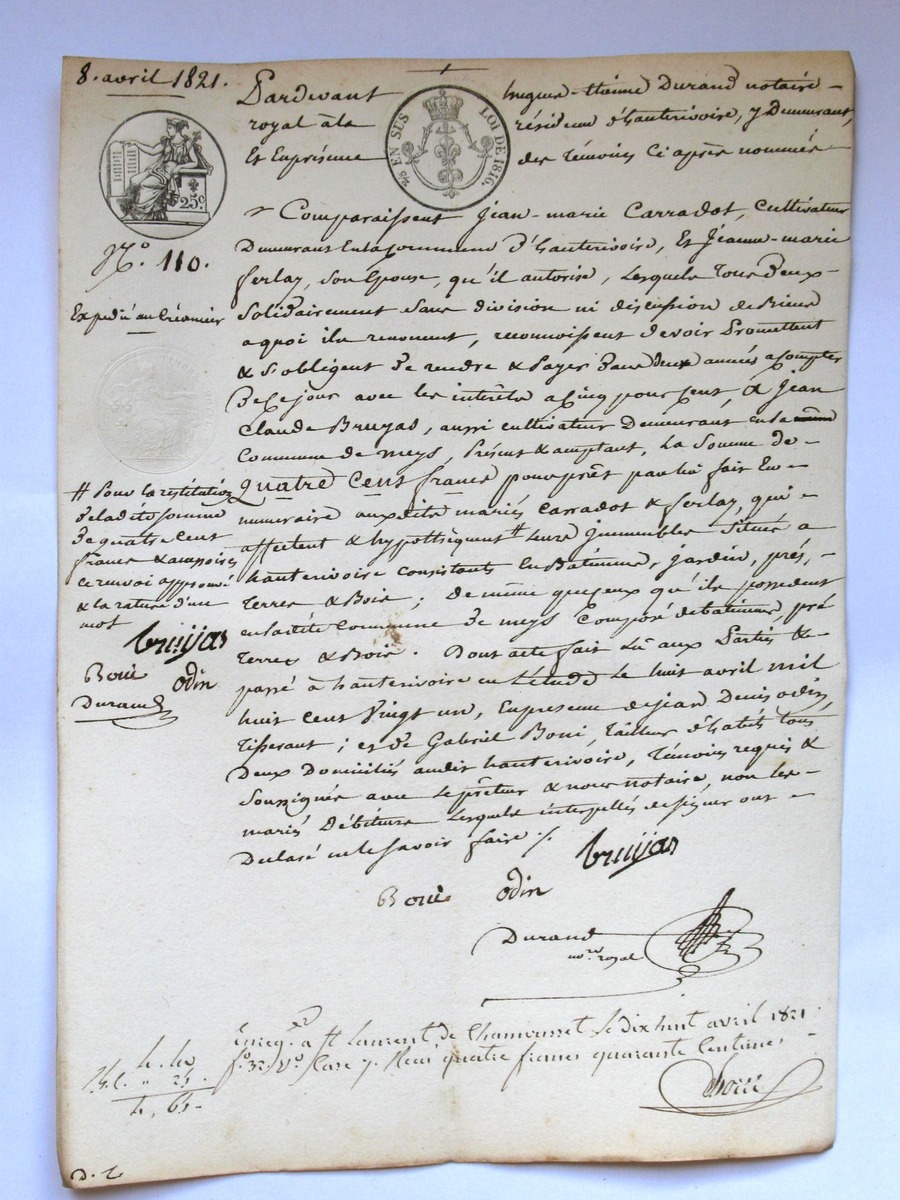 8. avril 1821.
Pardevant hugues-étienne Durand notaire
royal à la résidence d'hauterivoire, y Demeurant,
Et En présence des témoins Ci après nommés
EN SUS
LOI DE 1816.
25c
N.° 110.
Expédié au Créancier
Comparaissent Jean-marie Carradot, Cultivateur
Demeurant En la Commune d'hauterivoire, Et Jeanne-marie
ferlay, Son Epouse, qu'il autorise, Lesquels Tous Deux
Solidairement Sans division ni discussion de Biens
a quoi ils renoncent, reconnoissent devoir Promettent
& S'obligent De rendre & Payer Dans Deux années a Compter
De Ce jour avec les intérêts a Cinq pour Cent, à Jean
Claude Bruyas, aussi cultivateur Demeurant en la
Commune de meys, Présent & acceptant, La Somme de
Quatre Cent francs pour prêt par lui fait En
numeraire auxdits mariés Carradot & ferlay, qui
affectent & hypothèquent # leurs Immeubles Situés a
hauterivoire Consistants En Bâtiments, jardin, prés,
Terres & Bois ; De même que ceux qu'ils possedent
en ladite Commune De meys Composé de batiments, pré
Terres & Bois. Dont acte fait Lû aux Parties &
passé à hauterivoire en L'étude Le huit avril mil
huit Cent Vingt un, En présence de jean Denis odin
Tisserant ; et De Gabriel Boni, Tailleur d'habits Tous
Deux Domiciliés audit hauterivoire, Témoins requis &
Soussignés avec Le prêteur & nous notaire, non les
mariés Débiteurs Lesquels interpellés de signer ont
Declaré ne le Savoir faire ./.
# Pour la restitution
De ladite Somme
De quatre Cent
francs & accessoires
Ce renvoi approuvé
& la rature d'un
mot
bruijas
Boni odin
Durand
bruijas
Boni odin
Durand
nore royal
Enreg. à St Laurent de Chamousset Le dix huit avril 1821
f° 32. V° Case 7. Recu quatre francs quarante Centimes
4. 40
" 25.
4, 65